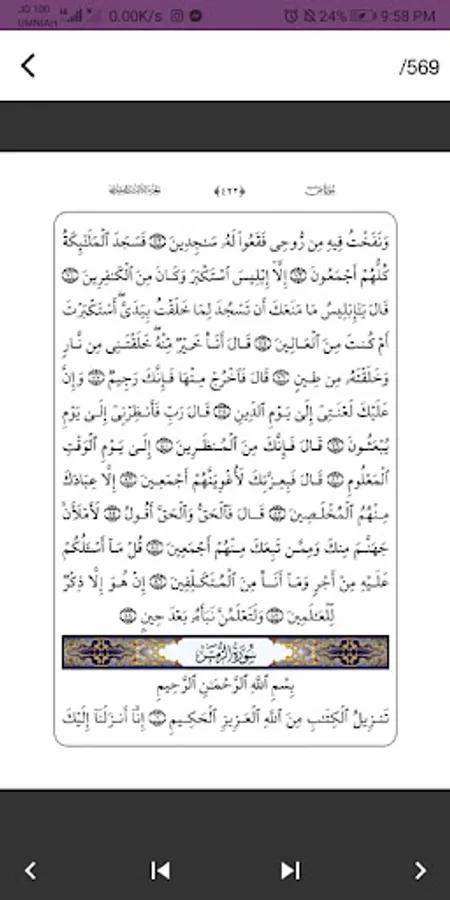 JO 100
UMNIAH
4G
0.00K/s
24%
9:58 PM
/569
سورة ص
﴿٤٢٢﴾
وَنَفَخْتُ فِيهِ مِن رُّوحِى فَقَعُوا۟ لَهُۥ سَـٰجِدِينَ فَسَجَدَ ٱلْمَلَـٰٓئِكَةُ
كُلُّهُمْ أَجْمَعُونَ إِلَّآ إِبْلِيسَ ٱسْتَكْبَرَ وَكَانَ مِنَ ٱلْكَـٰفِرِينَ
قَالَ يَـٰٓإِبْلِيسُ مَا مَنَعَكَ أَن تَسْجُدَ لِمَا خَلَقْتُ بِيَدَىَّ ۖ أَسْتَكْبَرْتَ
أَمْ كُنتَ مِنَ ٱلْعَالِينَ قَالَ أَنَا۠ خَيْرٌ مِّنْهُ ۖ خَلَقْتَنِى مِن نَّارٍ
وَخَلَقْتَهُۥ مِن طِينٍ قَالَ فَٱخْرُجْ مِنْهَا فَإِنَّكَ رَجِيمٌ وَإِنَّ
عَلَيْكَ لَعْنَتِىٓ إِلَىٰ يَوْمِ ٱلدِّينِ قَالَ رَبِّ فَأَنظِرْنِىٓ إِلَىٰ يَوْمِ
يُبْعَثُونَ قَالَ فَإِنَّكَ مِنَ ٱلْمُنظَرِينَ إِلَىٰ يَوْمِ ٱلْوَقْتِ
ٱلْمَعْلُومِ قَالَ فَبِعِزَّتِكَ لَأُغْوِيَنَّهُمْ أَجْمَعِينَ إِلَّا عِبَادَكَ
مِنْهُمُ ٱلْمُخْلَصِينَ قَالَ فَٱلْحَقُّ وَٱلْحَقَّ أَقُولُ لَأَمْلَأَنَّ
جَهَنَّمَ مِنكَ وَمِمَّن تَبِعَكَ مِنْهُمْ أَجْمَعِينَ قُلْ مَآ أَسْـَٔلُكُمْ
عَلَيْهِ مِنْ أَجْرٍ وَمَآ أَنَا۠ مِنَ ٱلْمُتَكَلِّفِينَ إِنْ هُوَ إِلَّا ذِكْرٌ
لِّلْعَـٰلَمِينَ وَلَتَعْلَمُنَّ نَبَأَهُۥ بَعْدَ حِينٍۭ
سُورَةُ الزُّمَر
بِسْمِ ٱللَّهِ ٱلرَّحْمَـٰنِ ٱلرَّحِيمِ
تَنزِيلُ ٱلْكِتَـٰبِ مِنَ ٱللَّهِ ٱلْعَزِيزِ ٱلْحَكِيمِ إِنَّآ أَنزَلْنَآ إِلَيْكَ